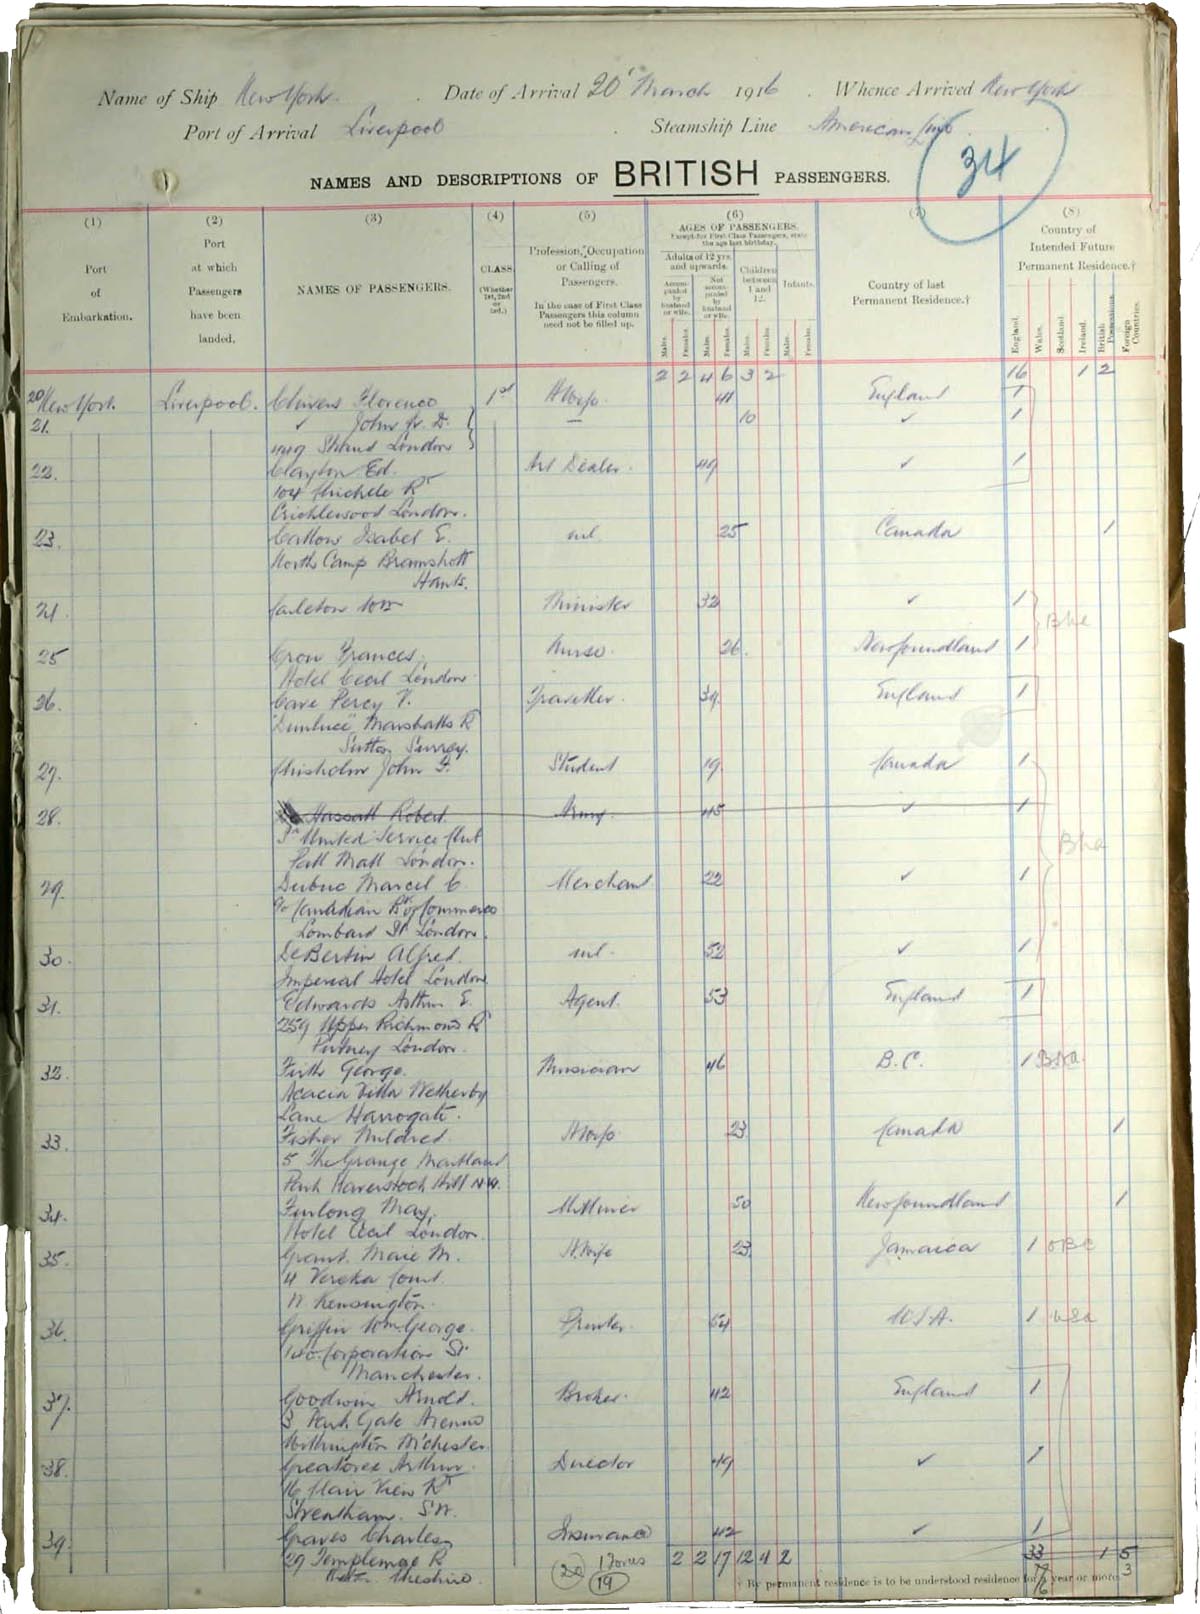 Name of Ship New York. Date of Arrival 20 March 1916. Whence Arrived New York
Port of Arrival Liverpool. Steamship Line American Line.
34
NAMES AND DESCRIPTIONS OF BRITISH PASSENGERS.
(1) (2) (3) (4) (5) (6) (7) (8)
Port of Embarkation.
Port at which Passengers have been landed.
NAMES OF PASSENGERS.
CLASS. (Whether 1st, 2nd or 3rd.)
Profession, Occupation or Calling of Passengers.
In the case of First Class Passengers this column need not be filled up.
AGES OF PASSENGERS.
Except for First Class Passengers, state the age last birthday.
Adults of 12 yrs. and upwards.
Accompanied by husband or wife.
Not accompanied by husband or wife.
Children between 1 and 12.
Infants.
Males. Females. Males. Females. Males. Females. Males. Females.
Country of last Permanent Residence.†
Country of Intended Future Permanent Residence.†
England. Wales. Scotland. Ireland. British Possessions. Foreign Countries.
2 2 4 6 3 2 16 1 2
20 New York. Liverpool. Chivers Florence 1st H Wife. 41 England 1
21. ✓ John Jr. D. — 10 ✓ 1
Strand London
22. Clayton Ed. Art Dealer. 49 ✓ 1
104 Chichele Rd
Cricklewood London.
23. Catlow Isabel E. nil 25 Canada 1
North Camp Bramshott
Hants.
24. Carleton Wm Minister 32 ✓ 1 Bha
25 Crow Frances. Nurse. 26. Newfoundland 1
Hotel Cecil London.
26. Cave Percy V. Traveller. 39. England 1
"Dunluce" Marshalls Rd
Sutton Surrey.
27. Chisholm John F. Student 19. Canada 1
28. Hassatt Robert. Army. 45 ✓ 1
United Service Club Bha
Pall Mall London.
29. Dubuc Marcel C. Merchant 22 ✓ 1
c/o Canadian Bk of Commerce
Lombard St London.
30. DeBertin Alfred. nil. 52 ✓ 1
Imperial Hotel London
31. Edwards Arthur E. Agent. 53 England 1
259 Upper Richmond Rd
Putney London.
32. Firth George. Musician 46 B.C. 1 BNA
Acacia Villa Wetherby
Lane Harrogate.
33. Fisher Mildred. H Wife 23 Canada 1
5 The Grange Maitland
Park Haverstock Hill N.W.
34. Furlong May. Milliner 50 Newfoundland 1
Hotel Cecil London.
35. Grant. Maie M. H. Wife 23 Jamaica 1 OBC
4 Court.
W. Kensington.
36. Griffin Wm. George. Printer. 54 U.S.A. 1 USA
Corporation St.
Manchester.
37. Goodwin Arnold. Broker. 42 England 1
3 Park Gate Avenue
Withington M'chester.
38. Greatorex Arthur. Director 49 ✓ 1
16 Clair View Rd
Streatham. S.W.
39. Graves Charles Insurance 42 ✓ 1
29 Templemore Rd
Cheshire.
20 19
2 2 17 12 4 2 33 1 5
3
† By permanent residence is to be understood residence for a year or more.